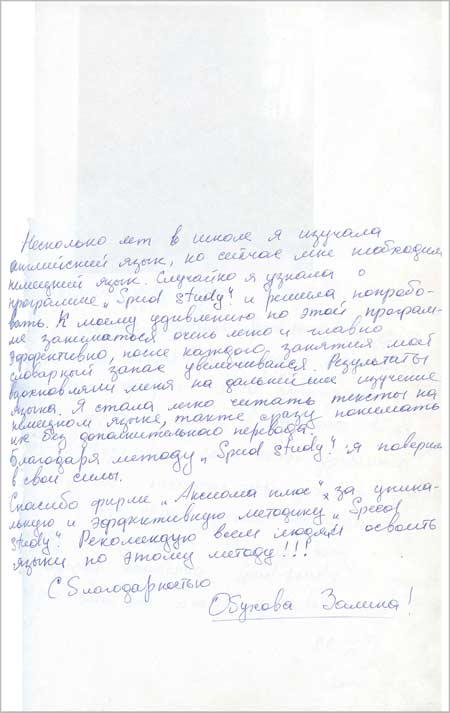 Несколько лет в школе я изучала
английский язык, но сейчас мне необходим
немецкий язык. Случайно я узнала о
программе „Speed Study“! и решила попробо-
вать. К моему удивлению по этой програм-
ме заниматься очень легко и главно
эффективно, после каждого занятия мой
словарный запас увеличивался. Результаты
вдохновляли меня на дальнейшее изучение
языка. Я стала легко читать тексты на
немецком языке, также сразу понимать
их без дополнительного перевода
Благодаря методу „Speed Study“! я поверила
в свои силы.
Спасибо фирме „Аксиома плюс“ за уника-
льную и эффективную методику „Speed
Study“! Рекомендую всем людям освоить
языки по этому методу!!!
С благодарностью
Обухова Залина!